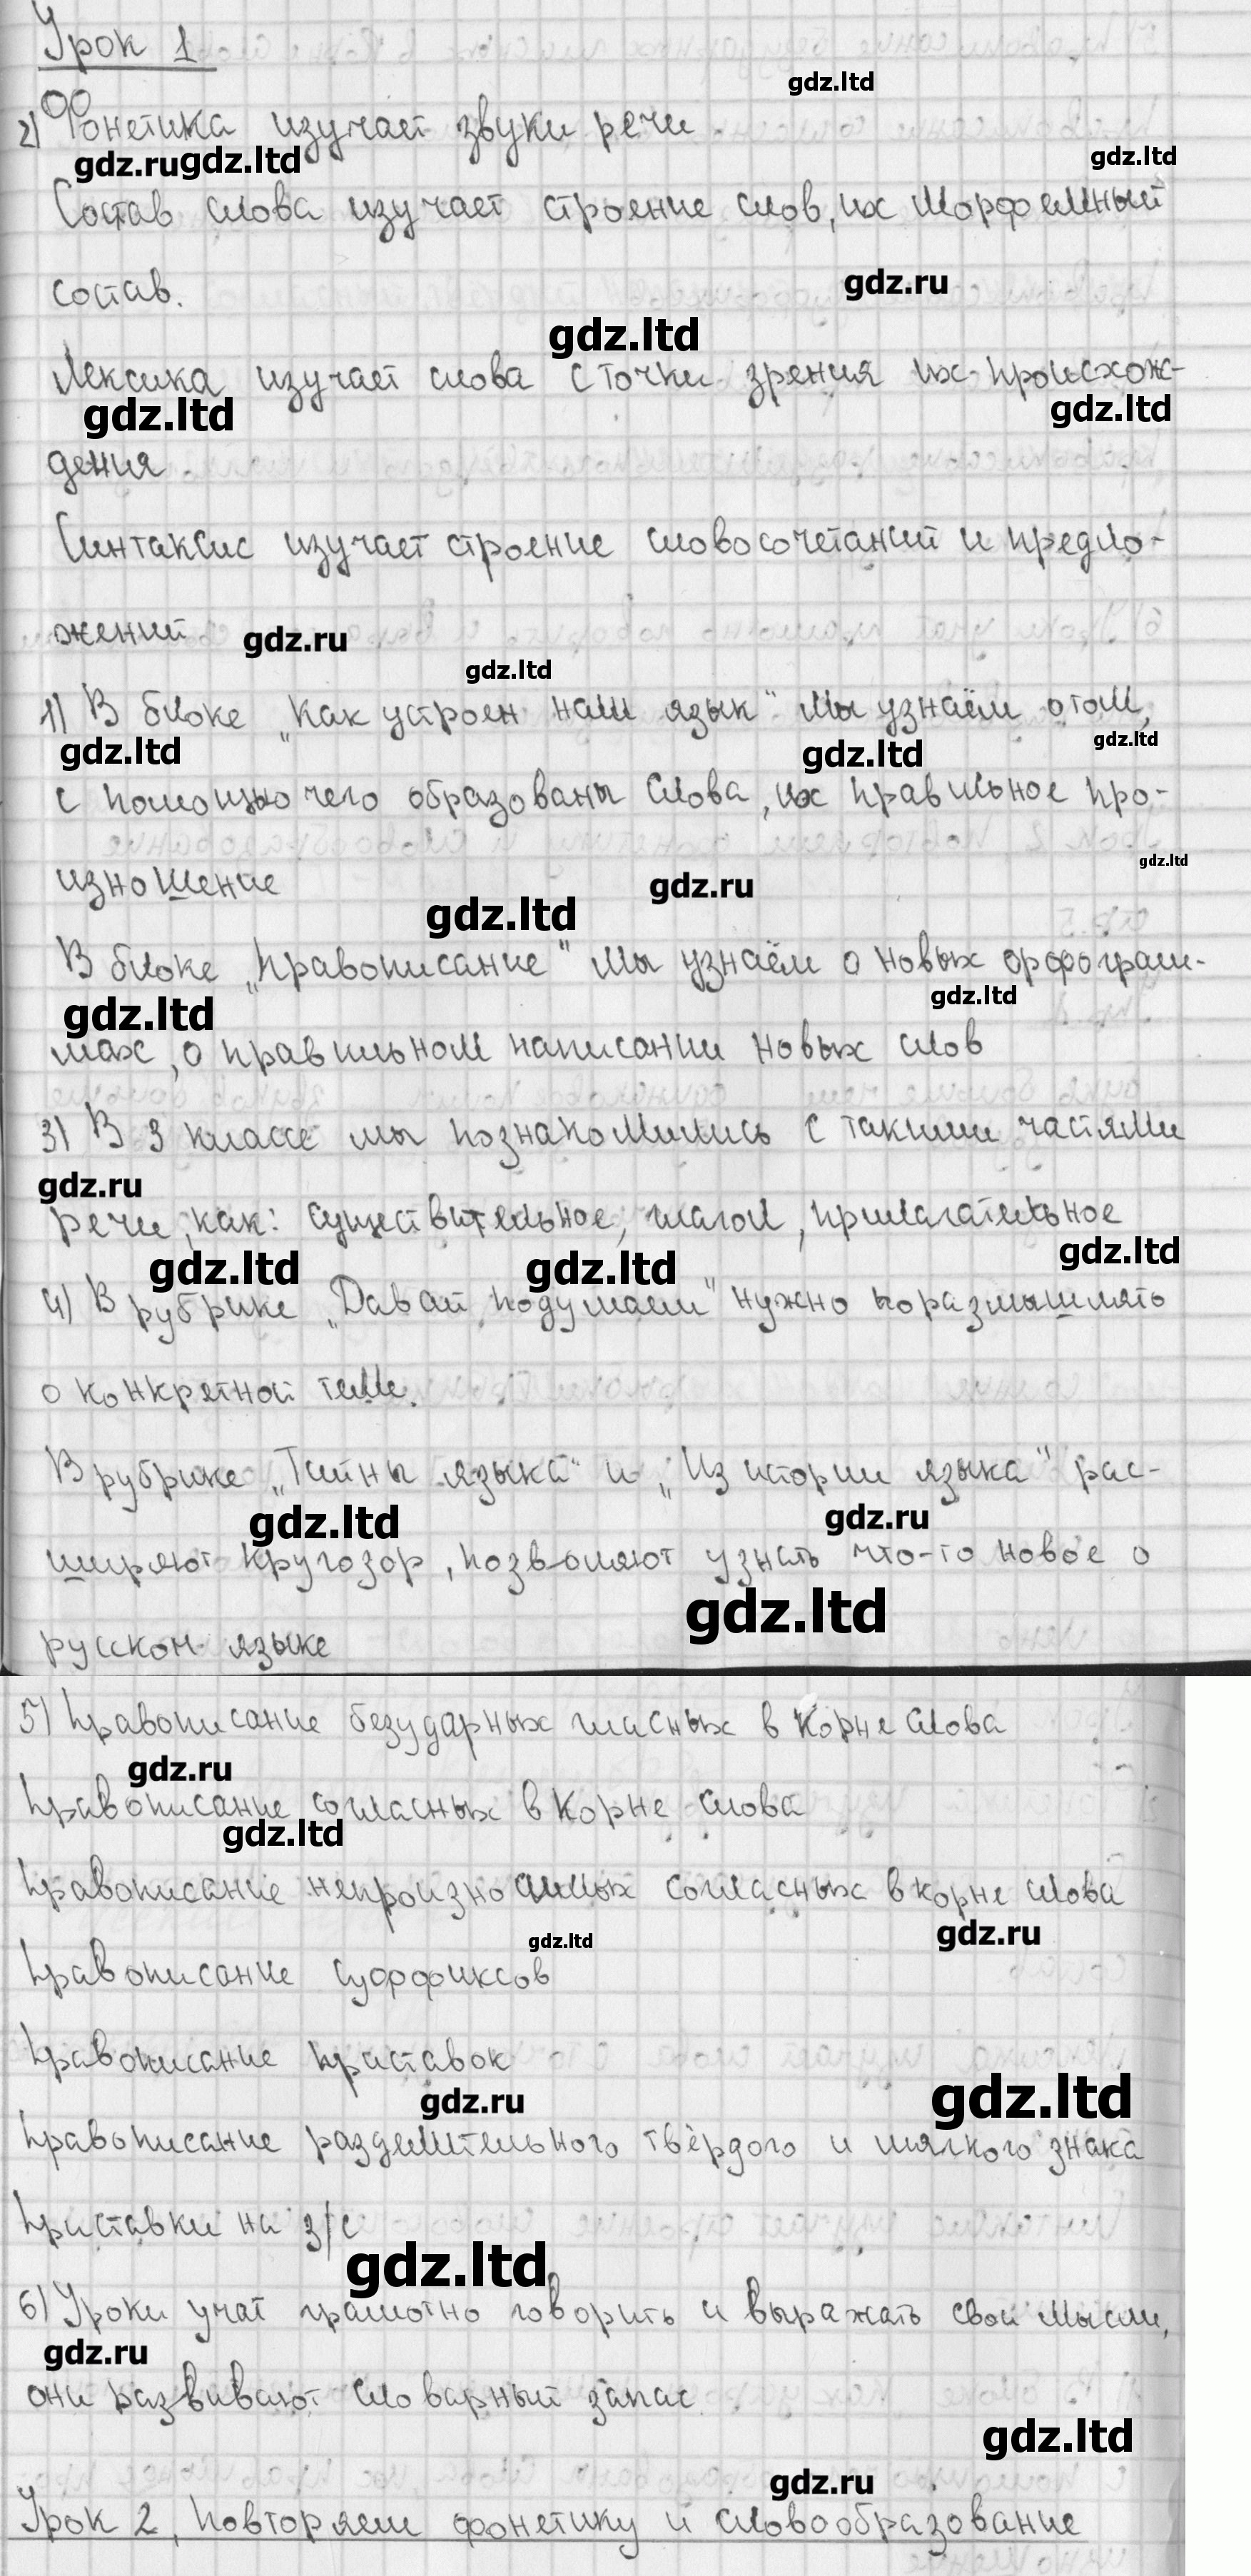 Урок 1
gdz.ltd
2) Фонетика изучает звуки речи
gdz.ru gdz.ltd gdz.ltd
Состав слова изучает строение слов, их морфемный
состав.
gdz.ru
gdz.ltd
Лексика изучает слова с точки зрения их происхож-
gdz.ltd gdz.ltd
дения
Синтаксис изучает строение словосочетаний и предло-
жений
gdz.ru
gdz.ltd
1) В блоке „Как устроен наш язык" мы узнаём о том,
gdz.ltd gdz.ltd gdz.ltd
с помощью чего образованы слова, их правильное про-
gdz.ltd
изношение
gdz.ru
gdz.ltd
В блоке „Правописание" мы узнаём о новых орфограм-
gdz.ltd gdz.ltd
мах, о правильном написании новых слов
3) В 3 классе мы познакомились с такими частями
gdz.ru
речи, как: существительное, глагол, прилагательное
gdz.ltd gdz.ltd gdz.ltd
4) В рубрике „Давай подумаем" нужно поразмышлять
о конкретной теме.
В рубрике „Тайны языка" и „Из истории языка" рас-
gdz.ltd gdz.ru
ширяют кругозор, позволяют узнать что-то новое о
gdz.ltd
русском языке
5) Правописание безударных гласных в корне слова
gdz.ru
Правописание согласных в корне слова
gdz.ltd
Правописание непроизносимых согласных в корне слова
gdz.ru
gdz.ltd
Правописание суффиксов
Правописание приставок
gdz.ru gdz.ltd
Правописание разделительного твёрдого и мягкого знака
Приставки на з/с
gdz.ltd
6) Уроки учат грамотно говорить и выражать свои мысли,
gdz.ru
они развивают словарный запас.
gdz.ltd
gdz.ru
Урок 2. Повторяем фонетику и словообразование